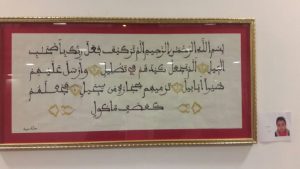 بسم الله الرحمن الرحيم ألم تر كيف فعل ربك بأصحب
الفيل ألم يجعل كيدهم في تضليل وأرسل عليهم
طيرا أبابيل ترميهم بحجارة من سجيل فجعلهم
كعصف مأكول